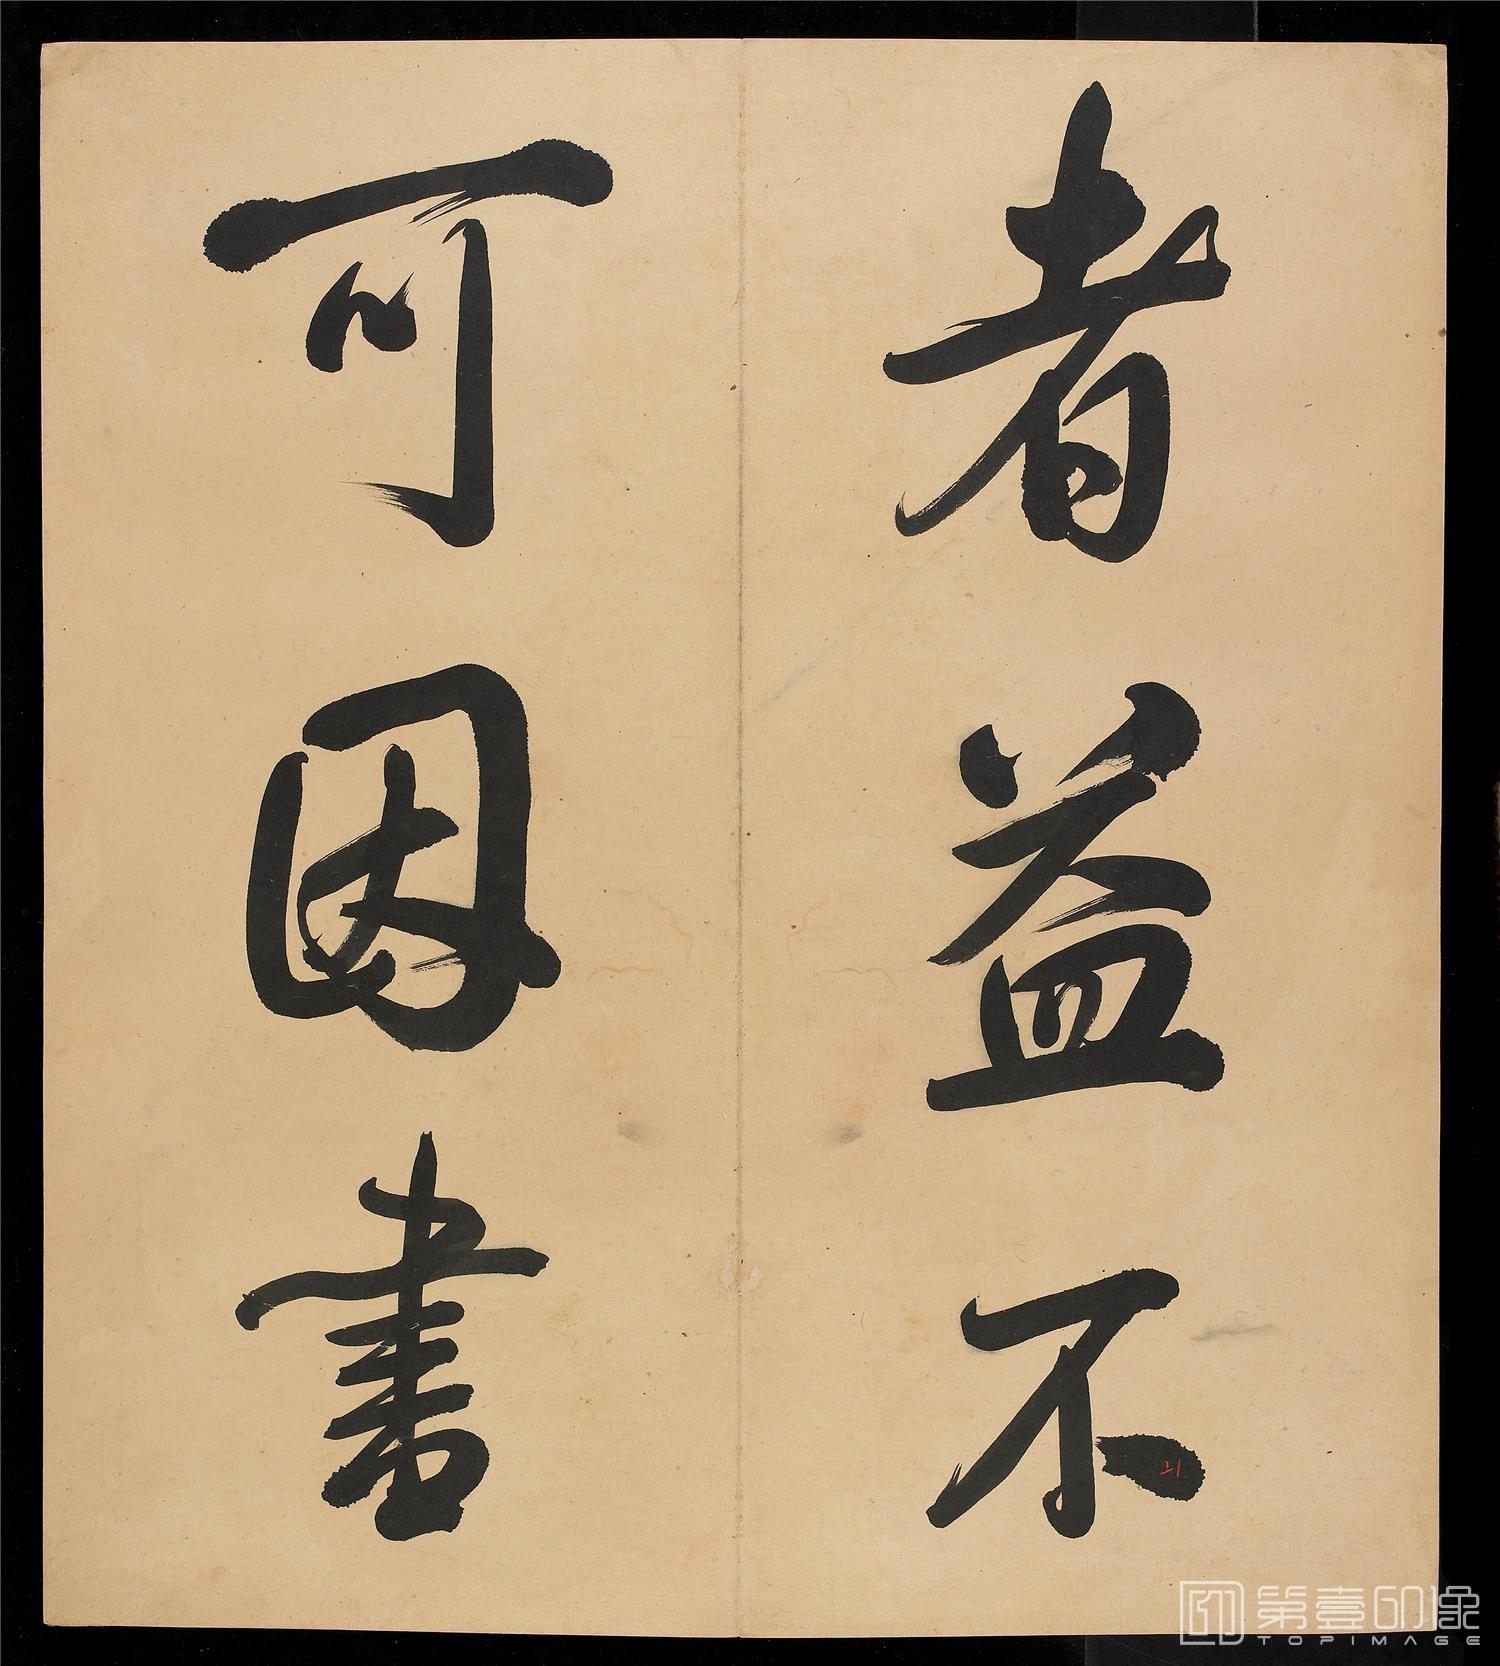 者益不
可因書
第壹印像
TOPIMAGE